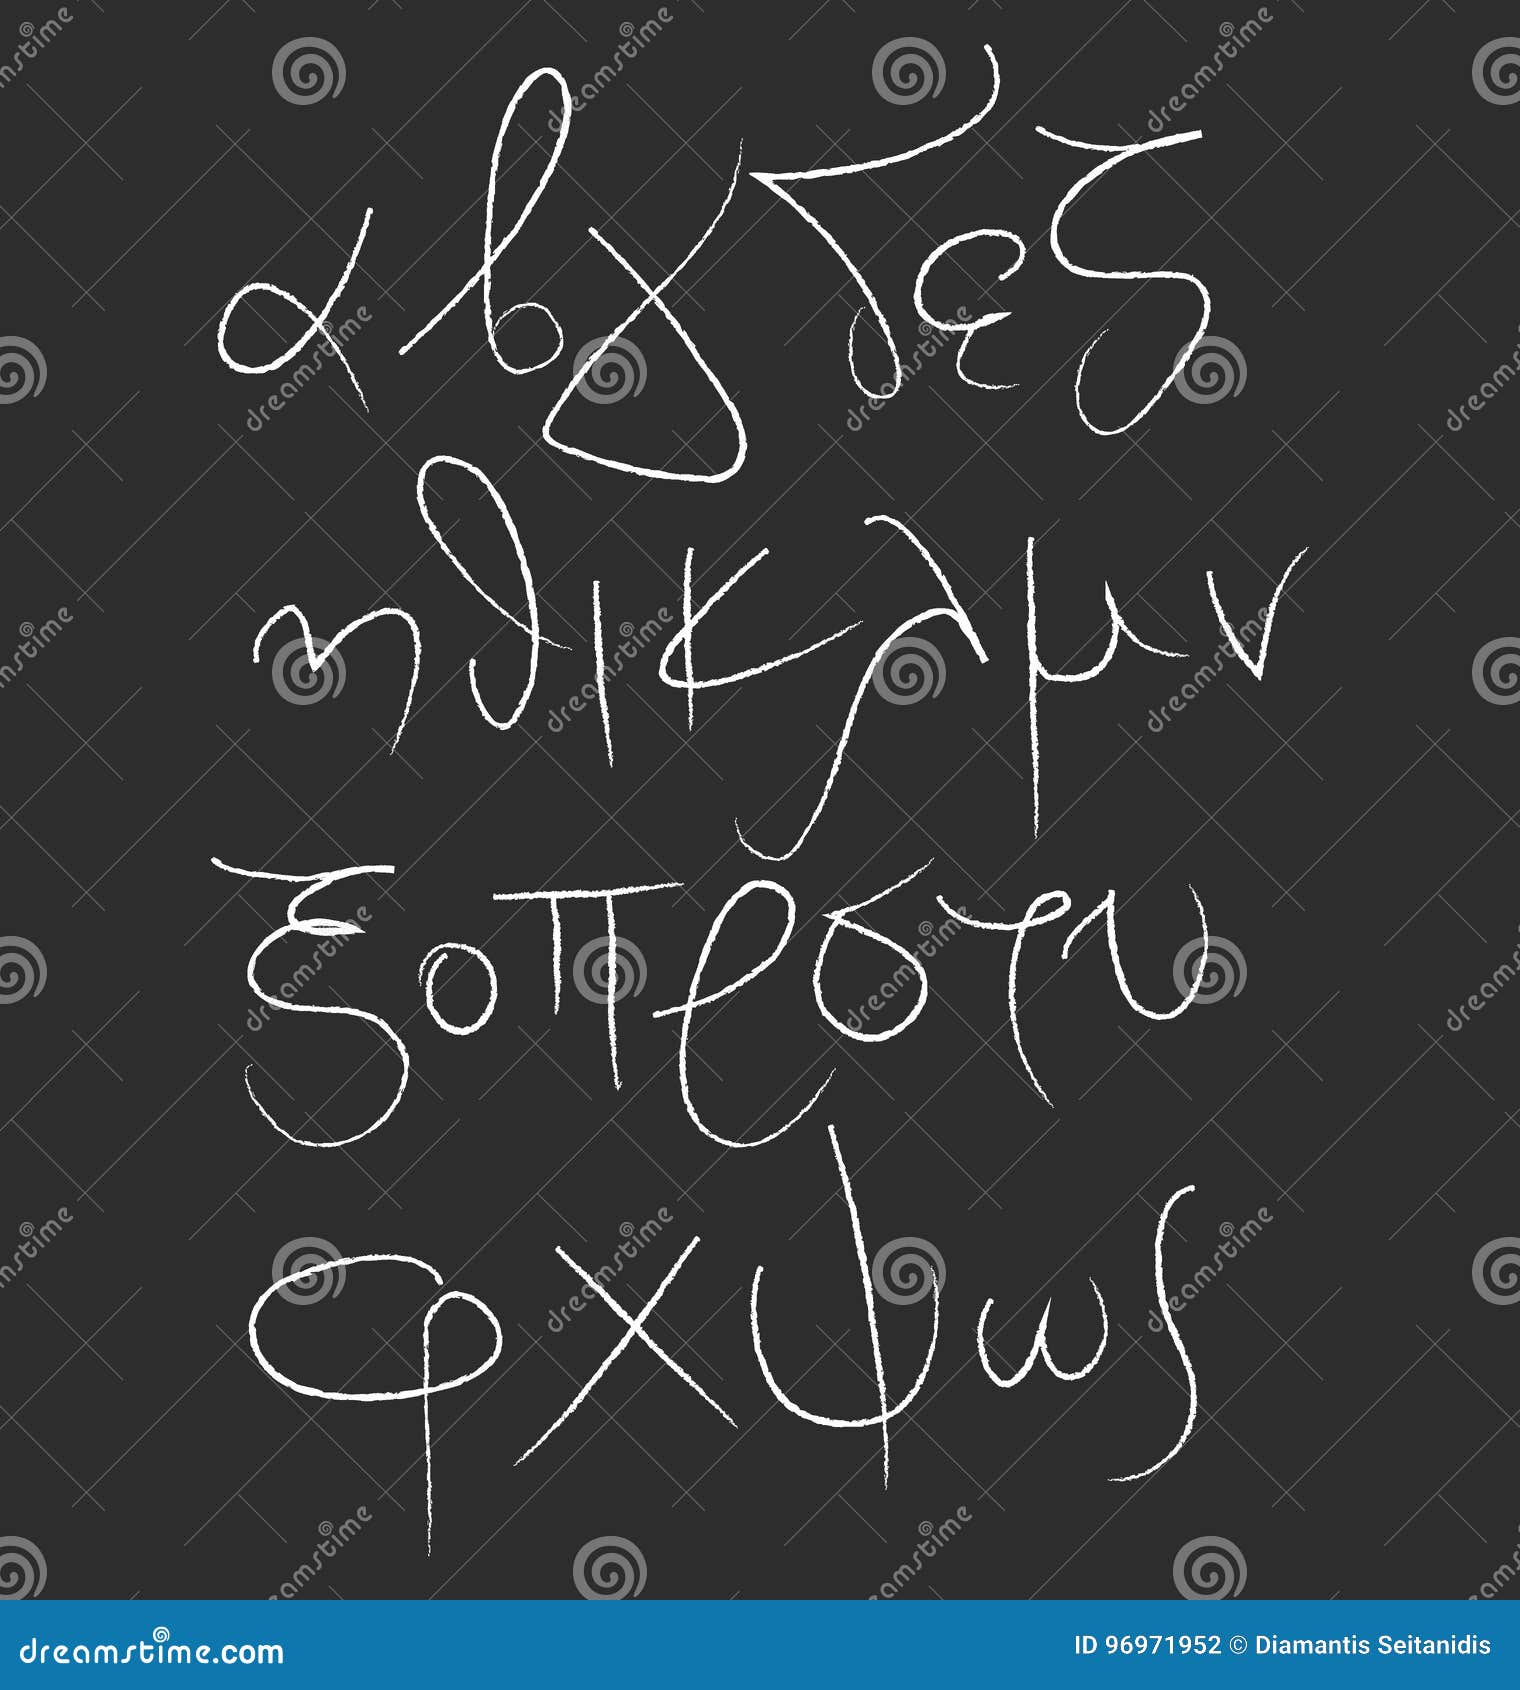 α β γ δ ε ζ
η θ ι κ λ μ ν
ξ ο π ρ σ τ υ
φ χ ψ ω ς
dreamstime.com
ID 96971952 © Diamantis Seitanidis